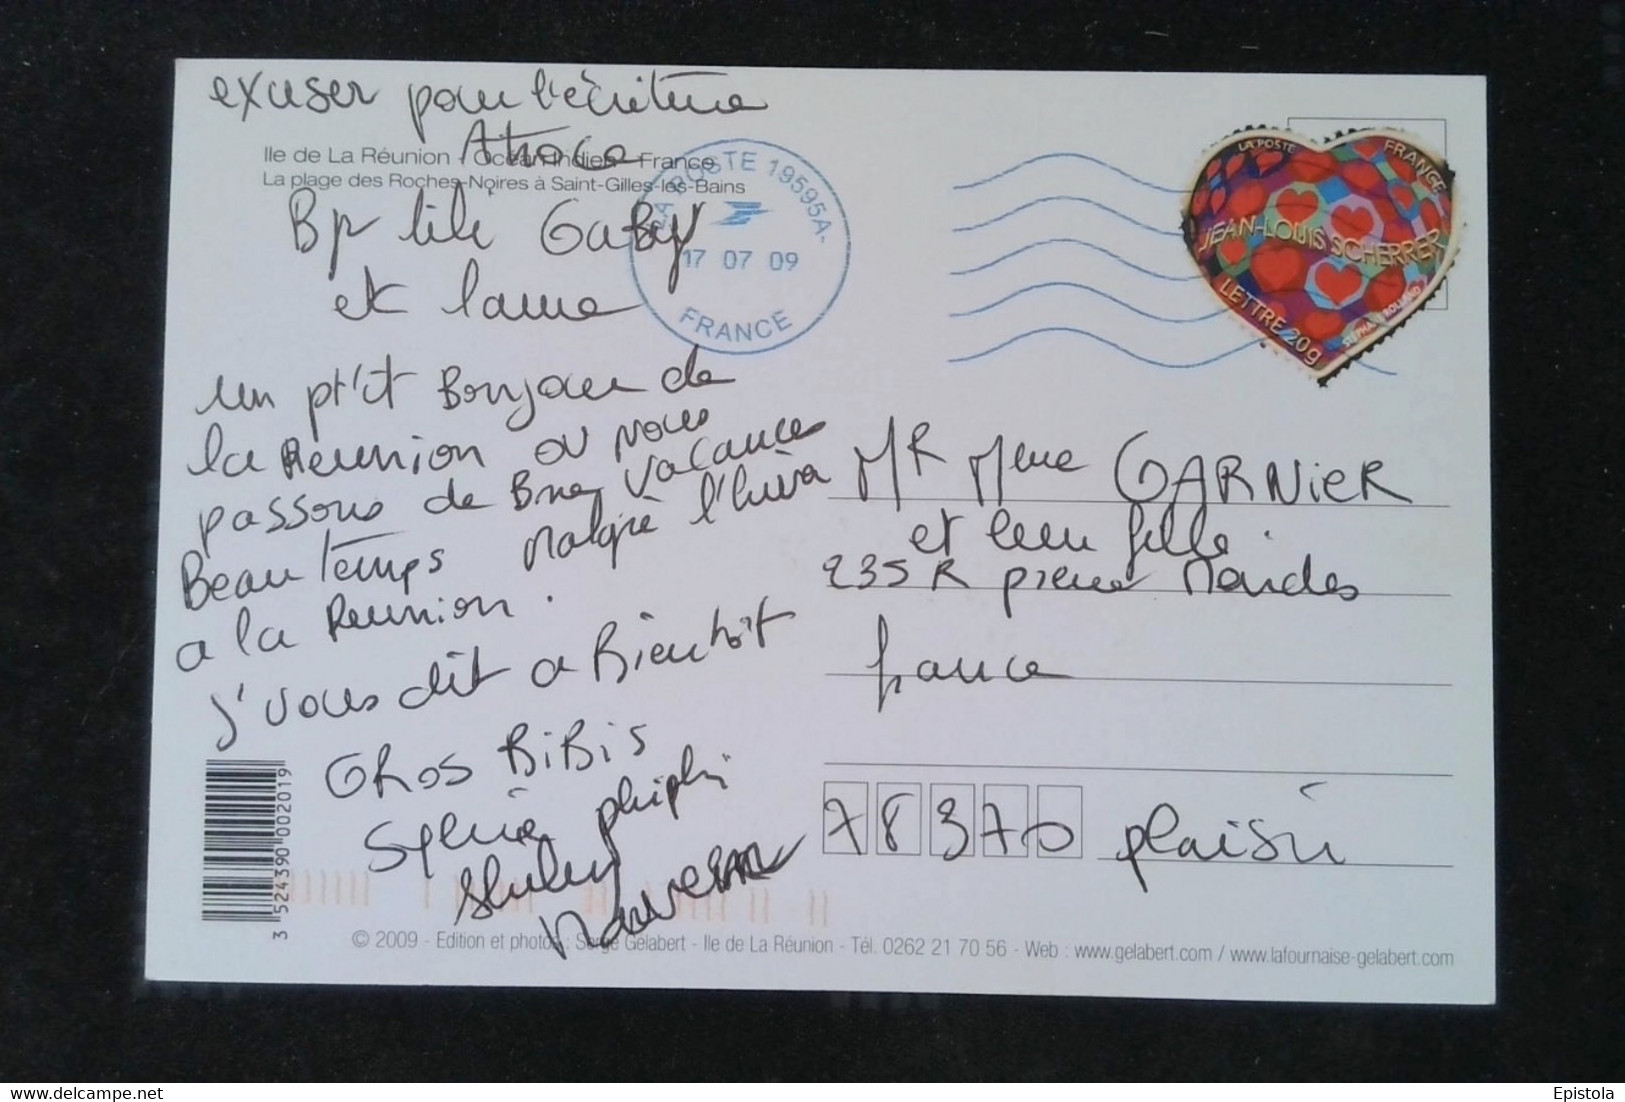 exuser pour l'écriture
Ile de La Réunion - Océan Indien - France
La plage des Roches-Noires à Saint-Gilles-les-Bains
Bjr lili Gaby
et
un pt'it Bonjour de
la Reunion ou nous
passons de Bne vacances
Beau Temps malgré l'hiver
a la Reunion.
j'vous dit a Bientôt
GROS BiBiS
Sylvie
LA POSTE 19595A-
17 07 09
FRANCE
LA POSTE
FRANCE
JEAN-LOUIS SCHERRER
LETTRE 20g
MR Mme GARNiER
et leur fille.
235 R pierre Mendes
france
78370 plaisir
3 524390 002019
© 2009 - Edition et photos : Serge Gélabert - Ile de La Réunion - Tél. 0262 21 70 56 - Web : www.gelabert.com / www.lafournaise-gelabert.com
www.delcampe.net
Epistola